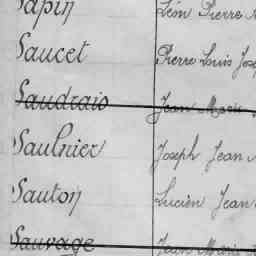 Sapin Léon Pierre
Saucet Pierre Louis Jose
Saudrais Jean Marie
Saulnier Joseph Jean
Sauton Lucien Jean
Sauvage Jean Marie